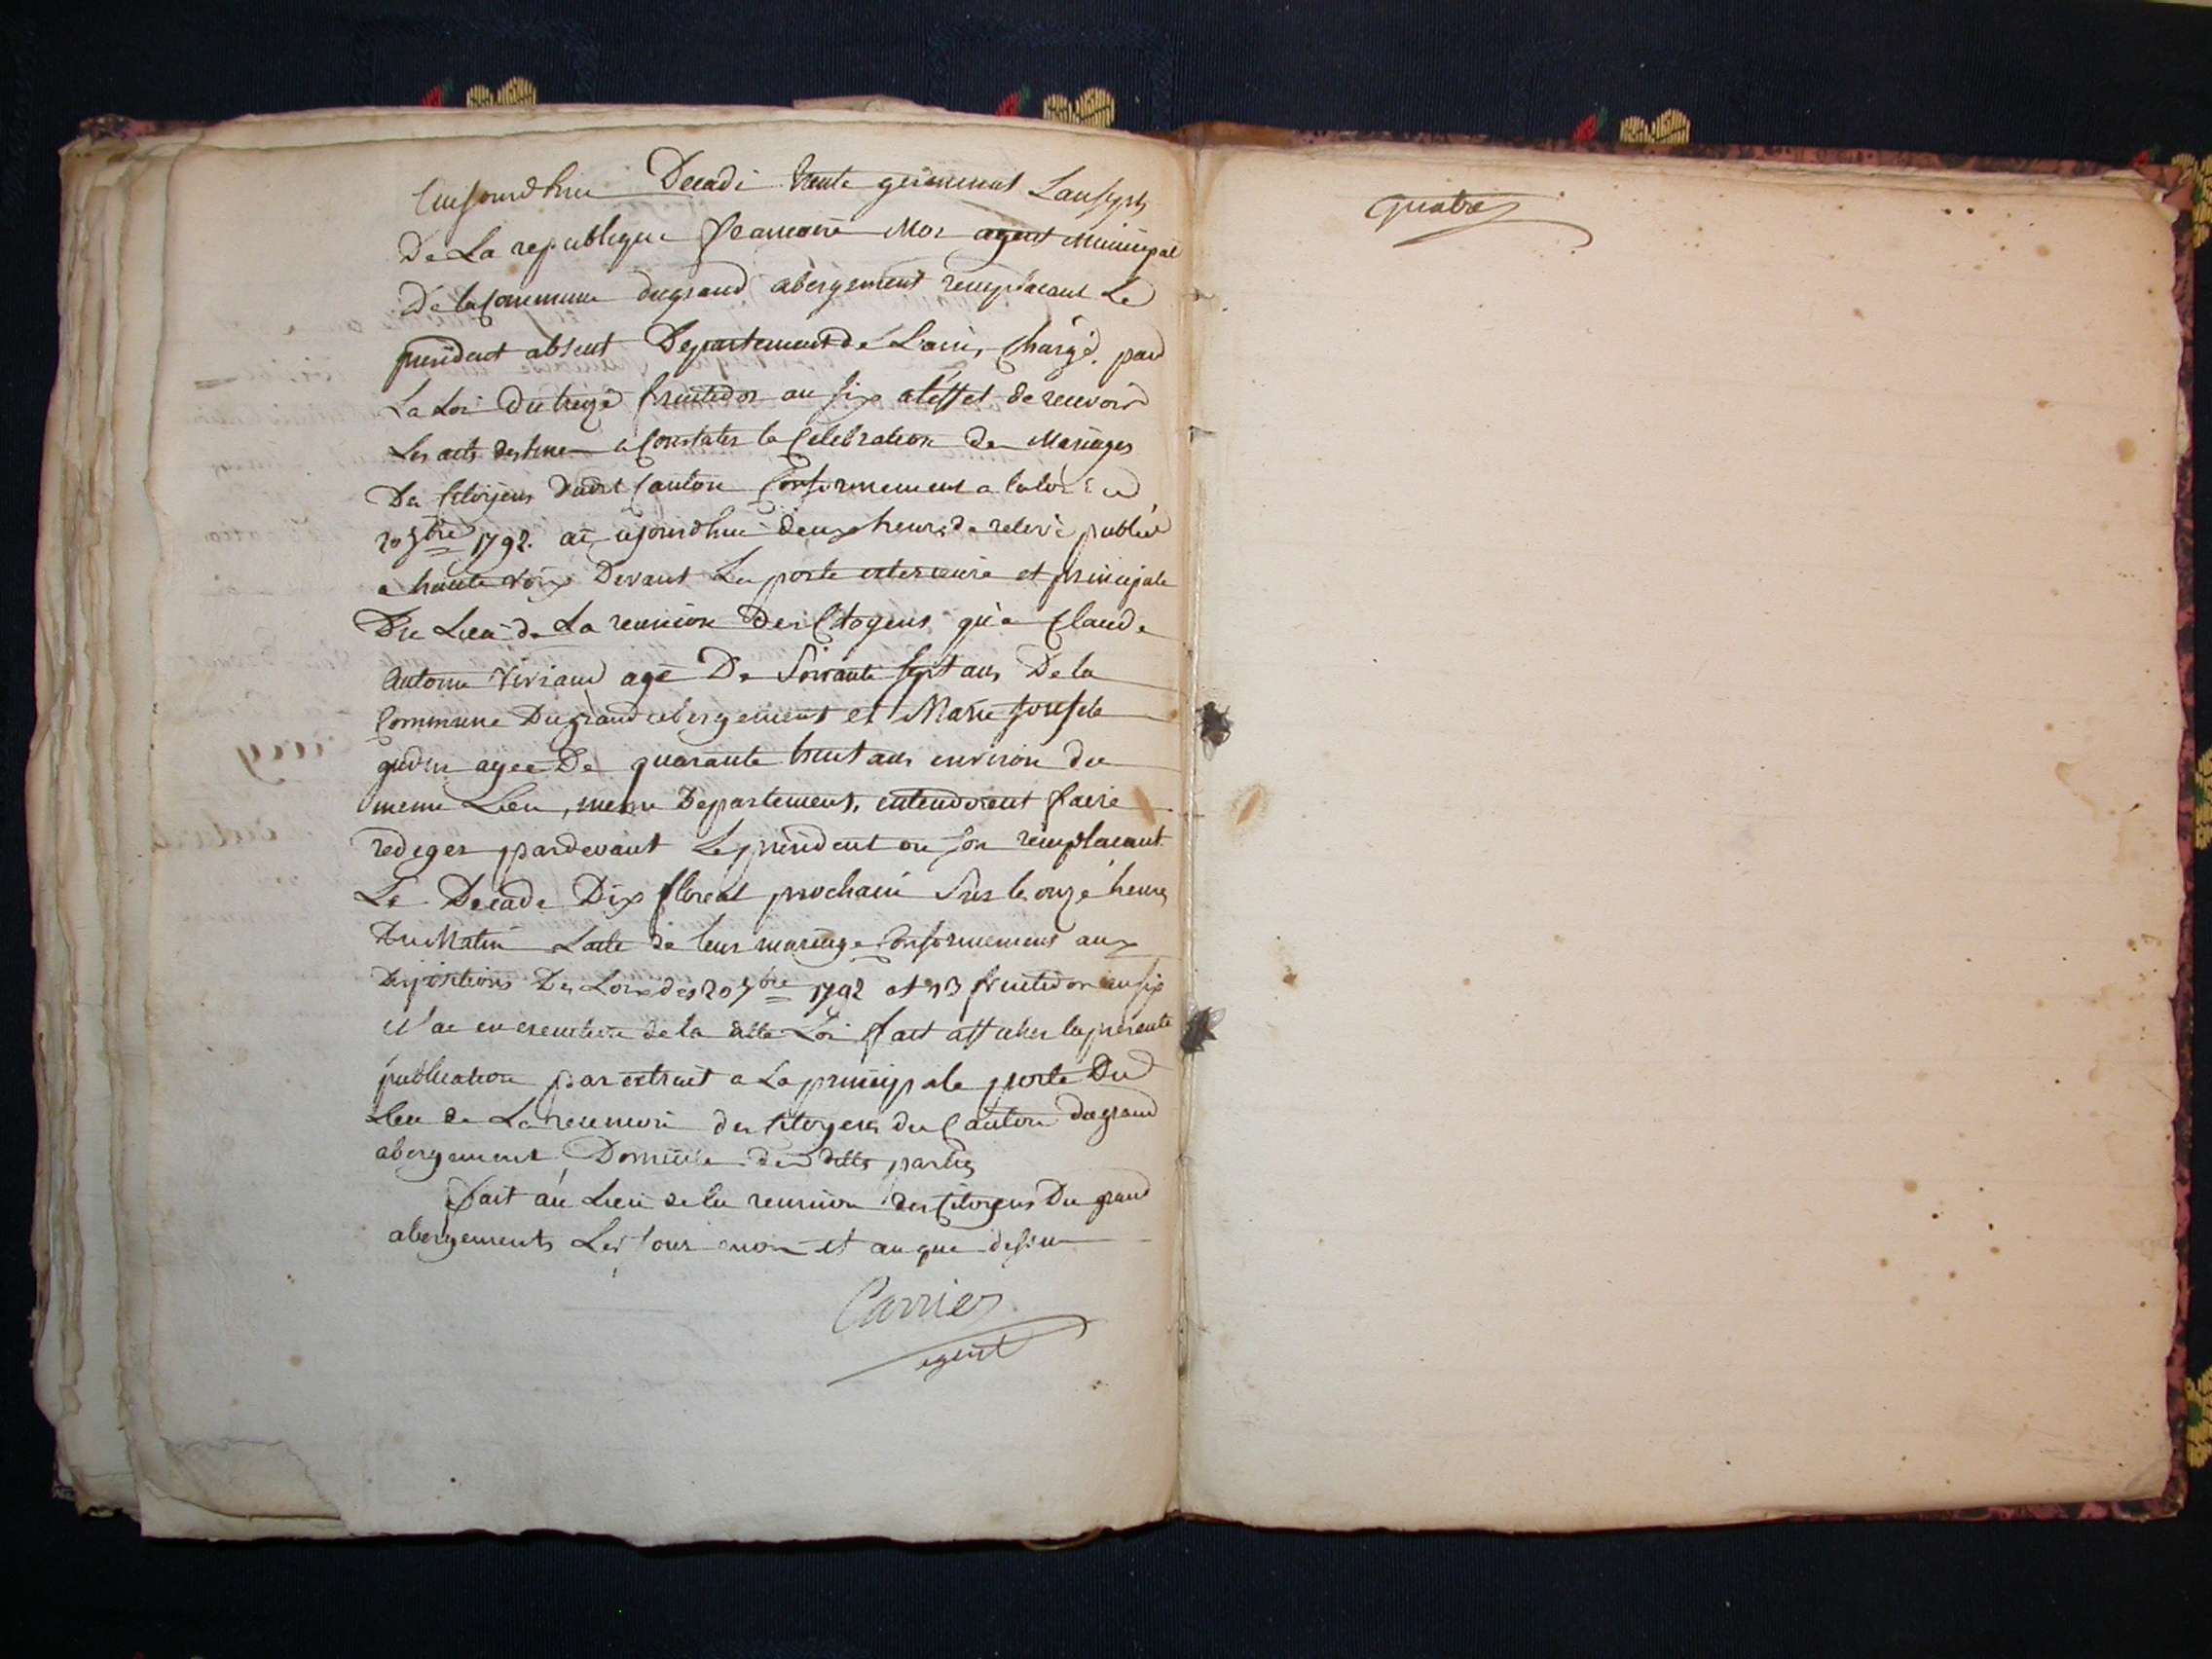 Aujourdhui Decadi trente germinal Lan sept
de La republique francaise Moi agent Municipal
de la Commune dugrand abergement remplacant Le
president absent Departement de Lain, Chargé par
La Loi du treize fructidor an six a leffet de recevoir
Les acts destines a Constater la Célebration des Mariages
Des Citoyens dudit Canton Conformement a la loi du
20 7bre 1792. ai aujourdhui deux heures de relevé publié
a haute voix Devant La porte exterieure et principale
Du Lieu de La reunion Des Citoyens que Claude
Antoine Viviand agé De Soixante sept ans De la
Commune Dugrand abergement et Marie Josephe
agée De quarante huit ans environ du
meme Lieu, meme Departement, entendoient faire
rediger pardevant Le president ou son remplacant
Le Decade Dix floreal prochain Sur les onze heures
Du Matin Lacte de leur mariage Conformement aux
Dispositions Des Loix des 20 7bre 1792 et 13 fructidor an six
et ai en execution de la ditte Loi fait afficher la presente
publication par extrait a La principale porte Du
Lieu de La reunion des Citoyens du Canton dugrand
abergement Domicile des dittes parties
fait au Lieu de la reunion des Citoyens Du grand
abergements Les jour mois et an que dessus
Carrier
agent
quatre